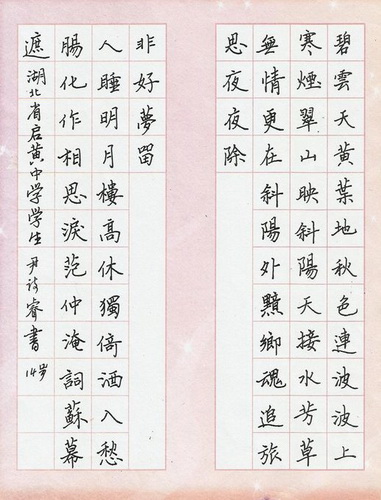 碧雲天黄葉地秋色連波波上
寒煙翠山映斜陽天接水芳草
無情更在斜陽外黯鄉魂追旅
思夜夜除
非好夢留
人睡明月樓高休獨倚酒入愁
腸化作相思淚范仲淹詞蘇幕
遮湖北省启黄中学学生尹诗睿書14岁